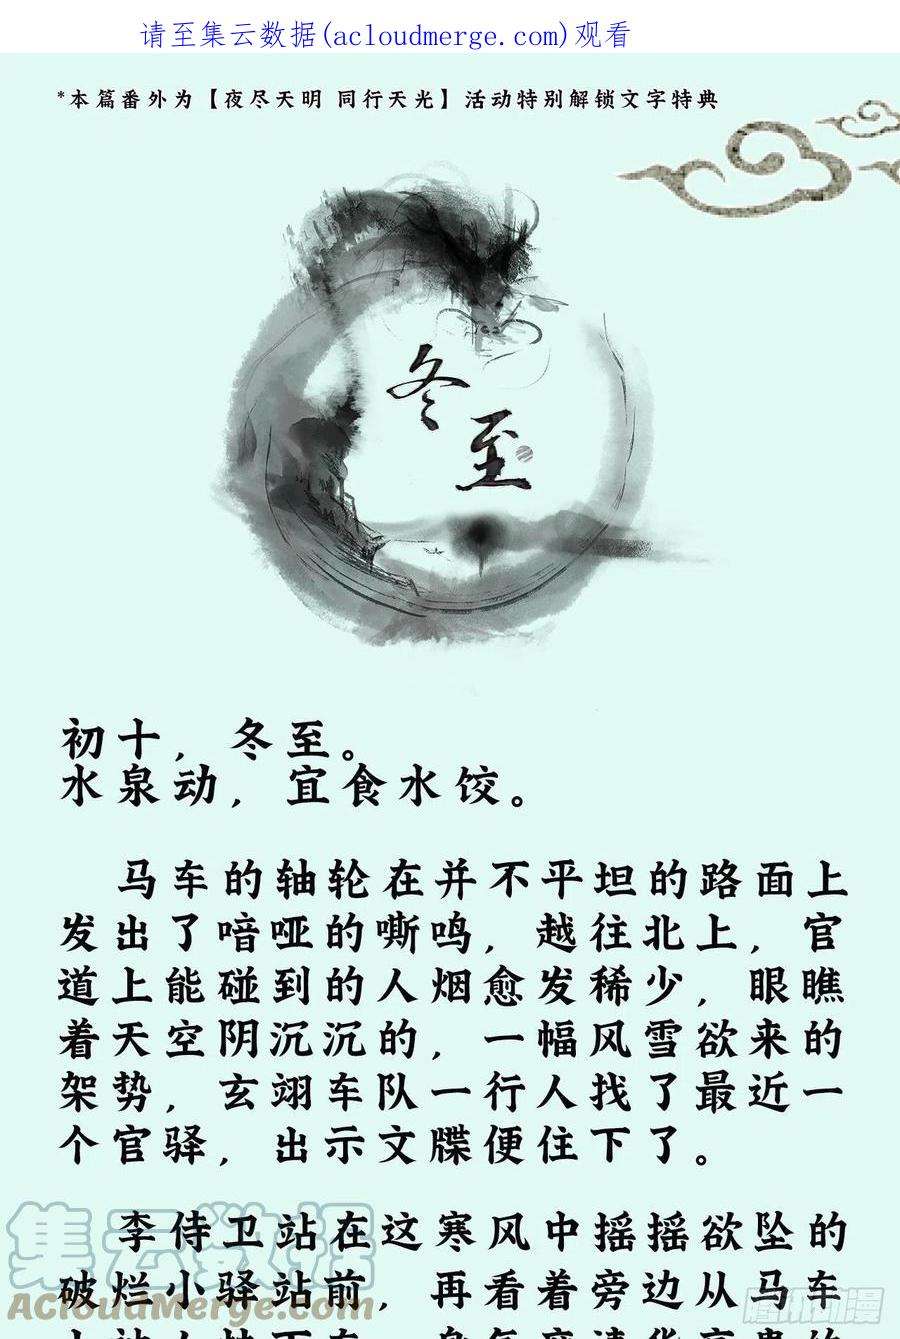 请至集云数据(acloudmerge.com)观看
*本篇番外为【夜尽天明 同行天光】活动特别解锁文字特典
冬
至
初十，冬至。
水泉动，宜食水饺。
马车的轴轮在并不平坦的路面上
发出了喑哑的嘶鸣，越往北上，官
道上能碰到的人烟愈发稀少，眼瞧
着天空阴沉沉的，一幅风雪欲来的
架势，玄翊车队一行人找了最近一
个官驿，出示文牒便住下了。
李侍卫站在这寒风中摇摇欲坠的
破烂小驿站前，再看着旁边从马车
集云数据
acloudmerge.com
腾讯动漫